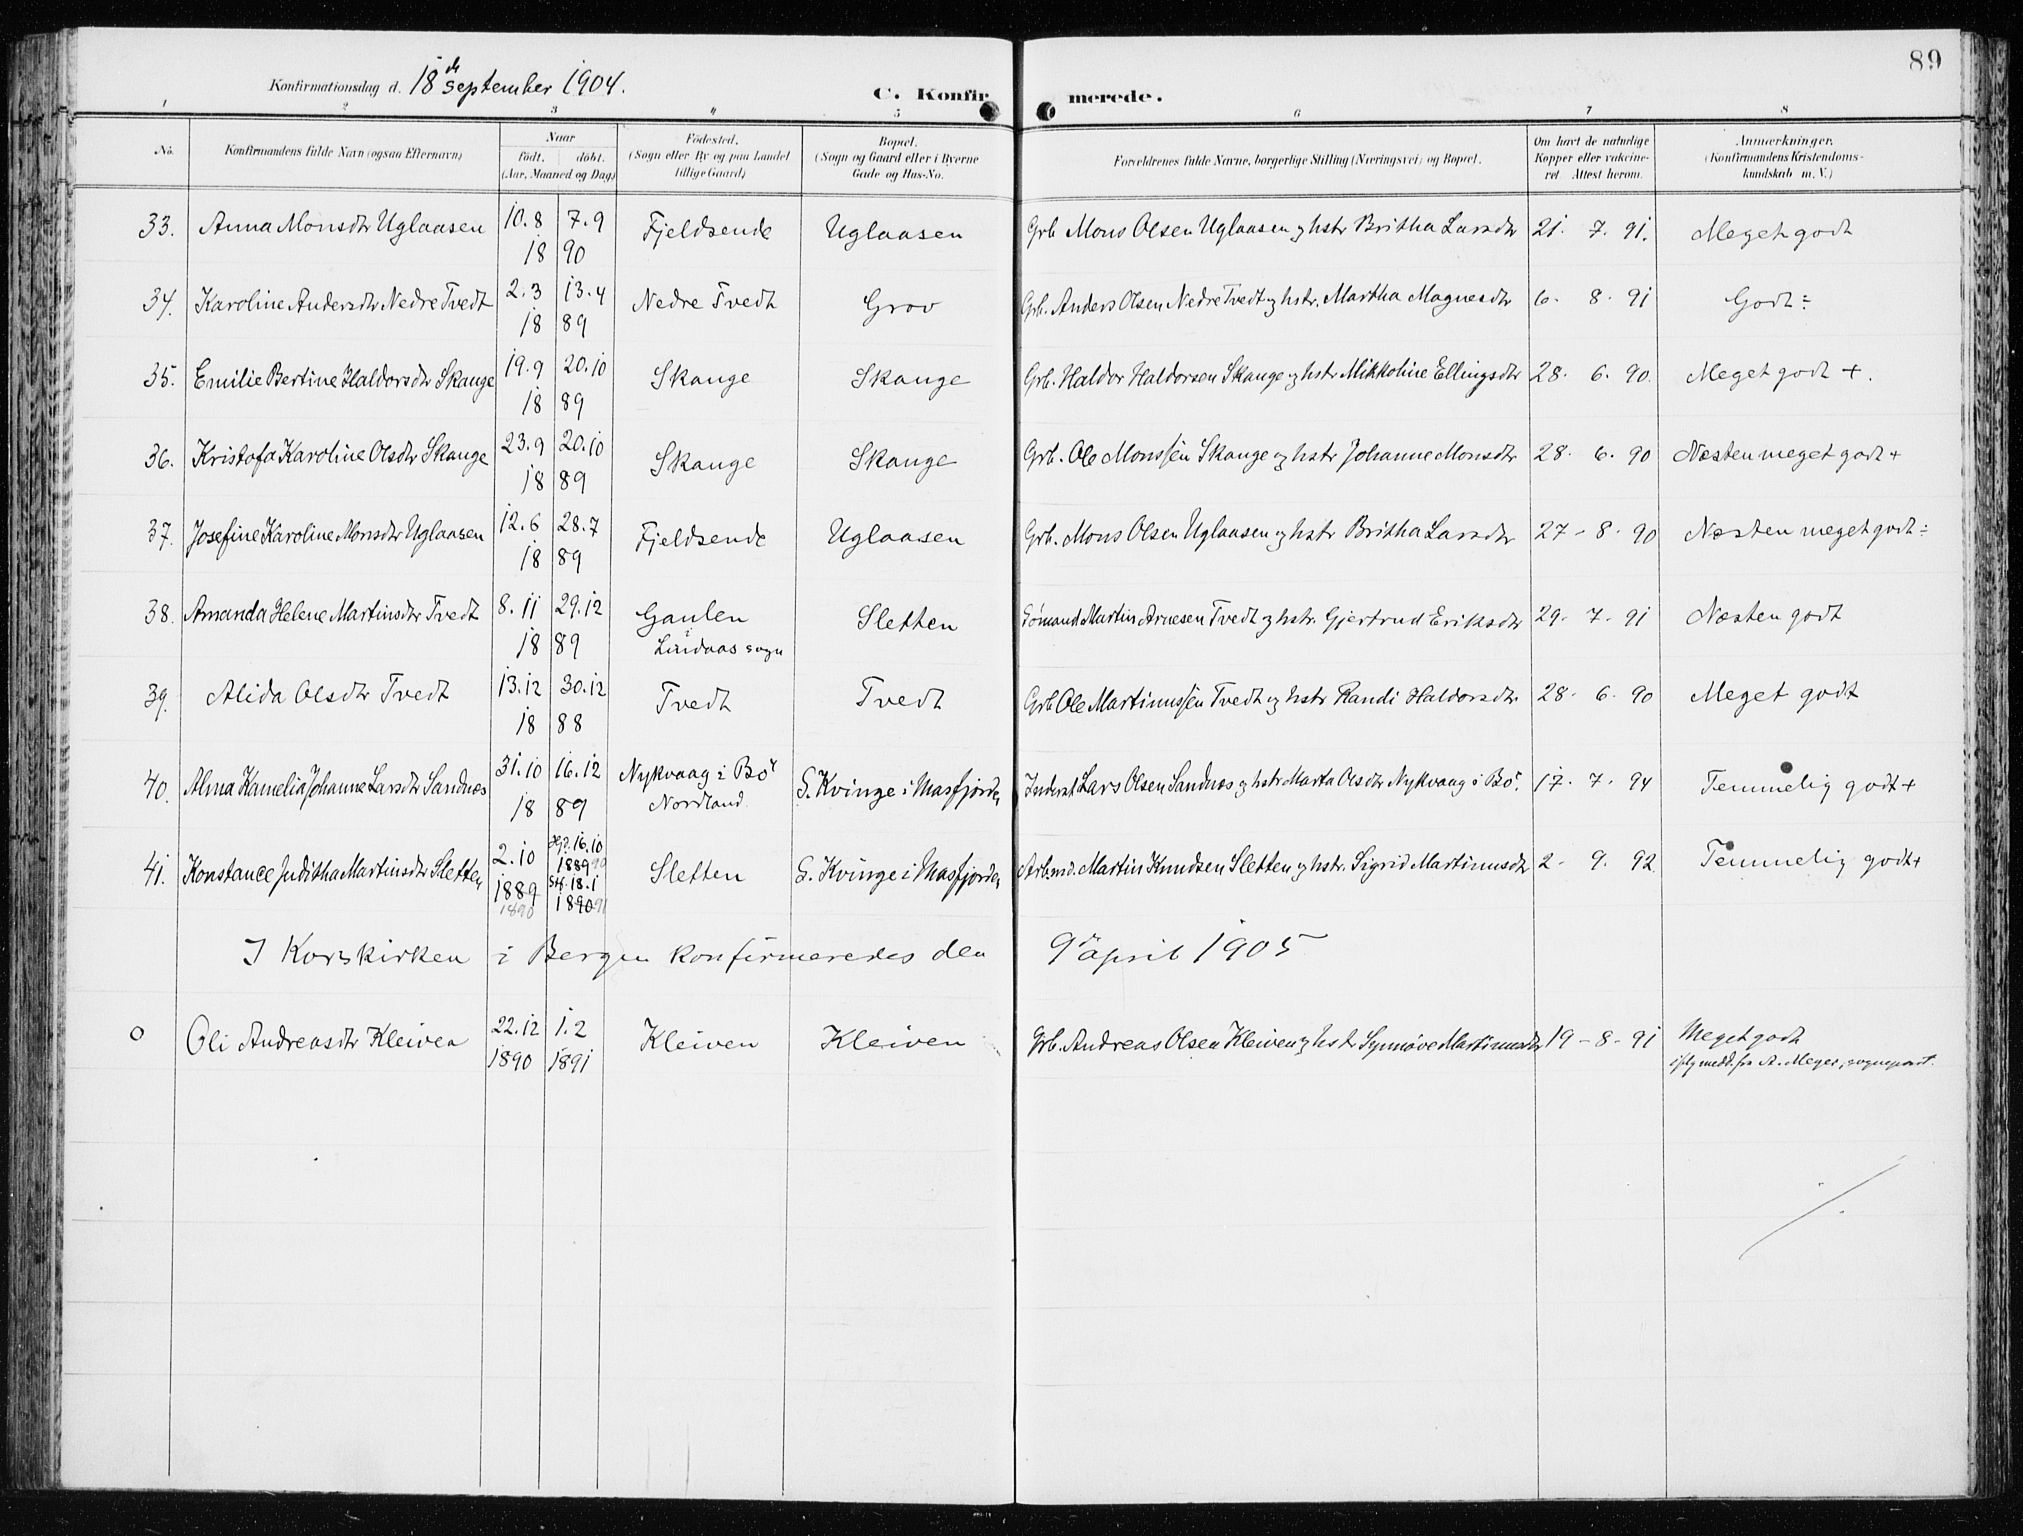 89
Konfirmationsdag d. 18de September 1904.
C. Konfirmerede.
1 2 3 4 5 6 7 8
No. Konfirmandens fulde Navn (ogsaa Efternavn) Naar födt. döbt. (Aar, Maaned og Dag) Födested. (Sogn eller By og paa Landet tillige Gaard) Bopæl. (Sogn og Gaard eller i Byerne Gade og Hus-No. Forældrenes fulde Navne, borgerlige Stilling (Næringsvei) og Bopæl. Om havt de naturlige Kopper eller vakcineret Attest herom. Anmærkninger. (Konfirmandens Kristendomskundskab m. V.)
33. Anna Monsdtr Uglaasen 10.8 7.9 Fjeldsende Uglaasen Grb Mons Olsen Uglaasen og hstr Britha Larsdtr 21. 7. 91. Meget godt
18 90
34. Karoline Andersdtr Nedre Tvedt 2.3 13.4 Nedre Tvedt Grov Grb. Anders Olsen Nedre Tvedt og hstr. Martha Magnesdtr 6. 8. 91 Godt÷
18 89
35. Emilie Bertine Haldorsdtr Skauge 19.9 20.10 Skauge Skauge Grb. Haldor Haldorsen Skauge og hstr Mikkoline Ellingsdtr 28. 6. 90. Meget godt +.
18 89
36. Kristofa Karoline Olsdtr Skauge 23.9 20.10 Skauge Skauge Grb. Ole Monssen Skauge og hstr Johanne Monsdtr 28. 6. 90 Næsten meget godt+
18 89
37. Josefine Karoline Monsdtr Uglaasen 12.6 28.7 Fjeldsende Uglaasen Grb. Mons Olsen Uglaasen og hstr Britha Larsdtr 27 - 8. 90 Næsten meget godt÷
18 89
38. Amanda Helene Martinsdtr Tvedt 8.11 29.12 Gaulen i Lindaas sogn Sletten Sömand Martin Arnesen Tvedt og hstr. Gjertrud Eriksdtr 29. 7. 91 Næsten godt
18 89
39. Alida Olsdtr Tvedt 13.12 30.12 Tvedt Tvedt Grb Ole Martinussen Tvedt og hstr Randi Haldorsdtr 28. 6. 90 Meget godt
18 88
40. Alma Kamelia Johanne Larsdtr Sandnes 31.10 16.12 Nykvaag i Bö Nordland. S. Kvinge i Masfjorden Inderst Lars Olsen Sandnes og hstr Marta Olsdtr Nykvaag i Bö. 17. 7. 94 Temmelig godt+
18 89
41. Konstance Juditha Martinsdtr Sletten 2.10 16.10 Sletten S. Kvinge i Masfjorden Arb.md. Martin Knudsen Sletten og hstr. Sigrid Martinusdtr 2 - 9. 92. Temmelig godt+
1889 1889 90
18.1
1890 1890 91
I Korskirken i Bergen konfirmeredes den 9de april 1905
0 Oli Andreasdtr Kleiven 22.12 1.2 Kleiven Kleiven Grb. Andreas Olsen Kleiven og hstr Synnöve Martinusdtr 19 - 8 - 91 Meget godt
1890 1891 iflg medd. fra A. Meyer, sognepræst.